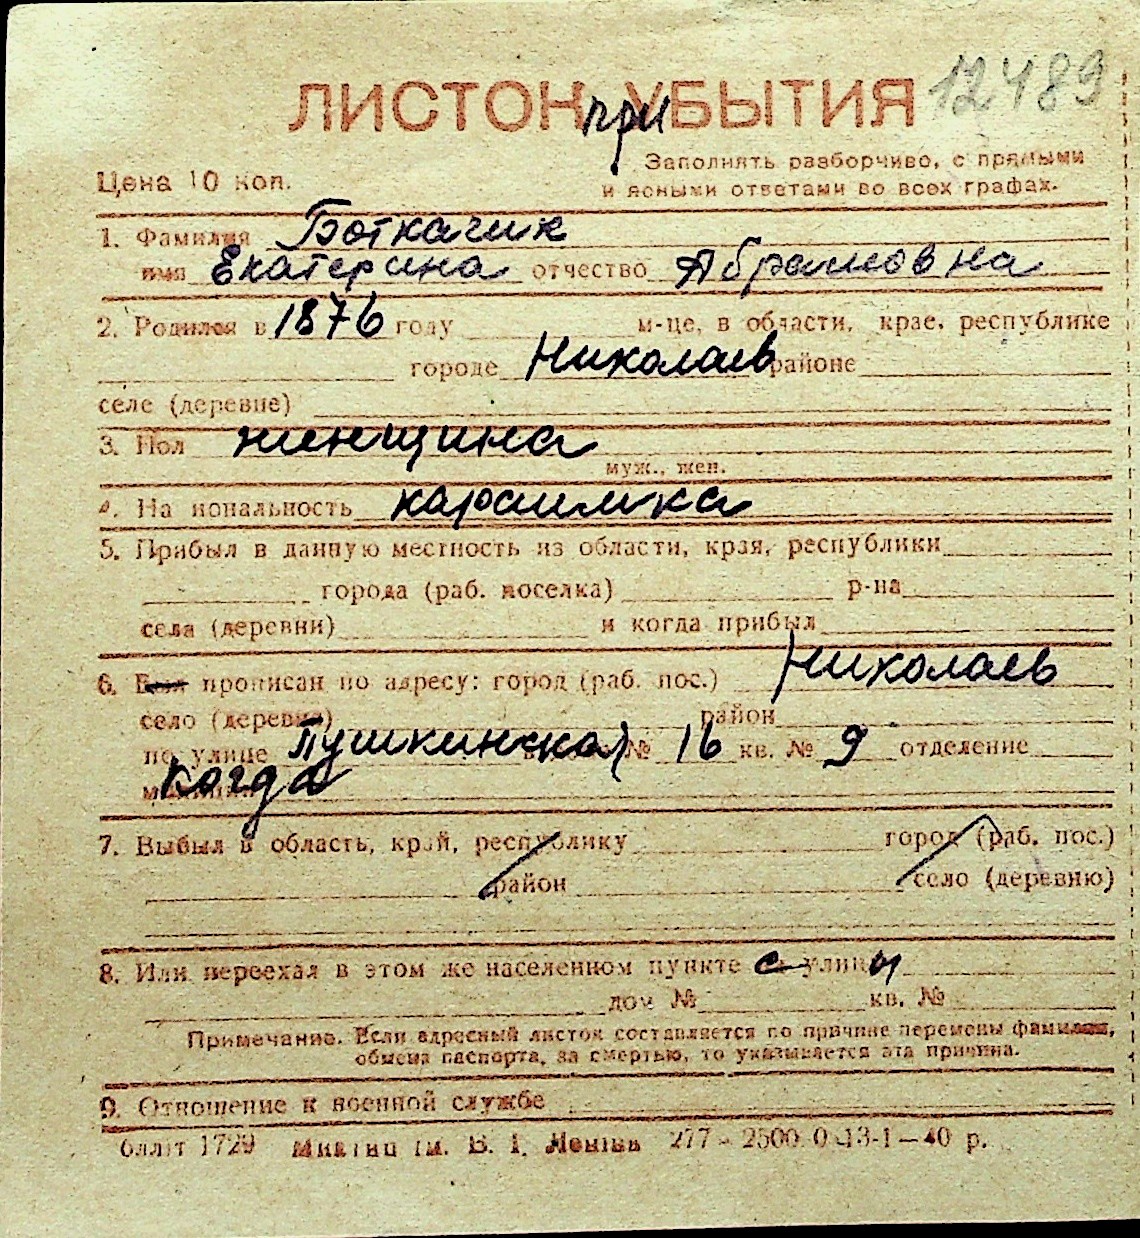 12489
ЛИСТОК приУБЫТИЯ
Заполнять разборчиво, с прямыми
Цена 10 коп.
и ясными ответами во всех графах.
1. Фамилия Боткачик
имя Екатерина отчество Абрамовна
2. Родился в 1876 году м-це, в области, крае, республике
городе Николаев районе
селе (деревне)
3. Пол женщина
муж., жен.
4. Национальность караимка
5. Прибыл в данную местность из области, края, республики
города (раб. поселка) р-на
села (деревни) и когда прибыл
6. Был прописан по адресу: город (раб. пос.) Николаев
село (деревня) район
по улице Пушкинская № 16 кв. № 9 отделение
когда
7. Выбыл в область, край, республику город (раб. пос.)
район село (деревню)
8. Или переехал в этом же населенном пункте с улицы
дом № кв. №
Примечание. Если адресный листок составляется по причине перемены фамилии,
обмена паспорта, за смертью, то указывается эта причина.
9. Отношение к военной службе
1729 В. І. Леніна 277 – 2500 0 13-1–40 р.